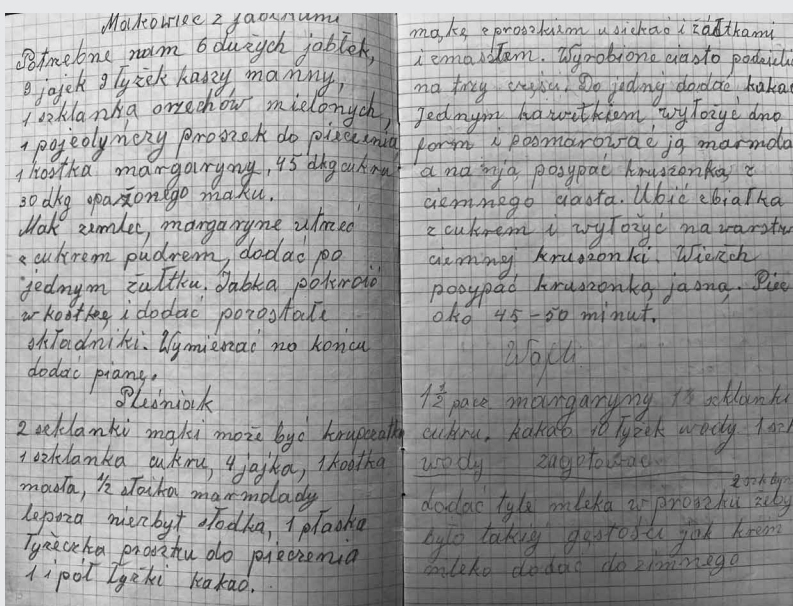 Makowiec z jabłkami
Potrzebne nam 6 dużych jabłek,
9 jajek 9 łyżek kaszy manny,
1 szklanka orzechów mielonych,
1 pojedynczy proszek do pieczenia
1 kostka margaryny, 45 dkg cukru
30 dkg sparzonego maku.
Mak zemleć, margaryne utrzeć
z cukrem pudrem, dodać po
jednym żułtku. Jabka pokroić
w kostkę i dodać pozostałe
składniki. Wymieszać na końcu
dodać pianę.
Pleśniak
2 szklanki mąki może być krupczatka
1 szklanka cukru, 4 jajka, 1 kostka
masła, ½ słoika marmolady
lepsza niezbyt słodka, 1 płaska
łyżeczka proszku do pieczenia
1 i pół łyżki kakao.
mąkę z proszkiem usiekać i żółtkami
i z masłem. Wyrobione ciasto podzielić
na trzy części. Do jednej dodać kakao
Jednym kawełkiem wyłożyć dno
form i posmarować ją marmola
a na nją posypać kruszonką z
ciemnego ciasta. Ubić z białka
z cukrem i wyłożyć na warstw
ciemnej kruszonki. Wierzch
posypać kruszonką jasną. Piec
oko 45-50 minut.
Wafli
1½ margaryny szklanki
cukru, kakao 10 łyżek wody 1 szk
wody zagotować
2 szk
dodać tyle mleka w proszku żeby
było takiej gęstości jak krem
mleko dodać do zimnego